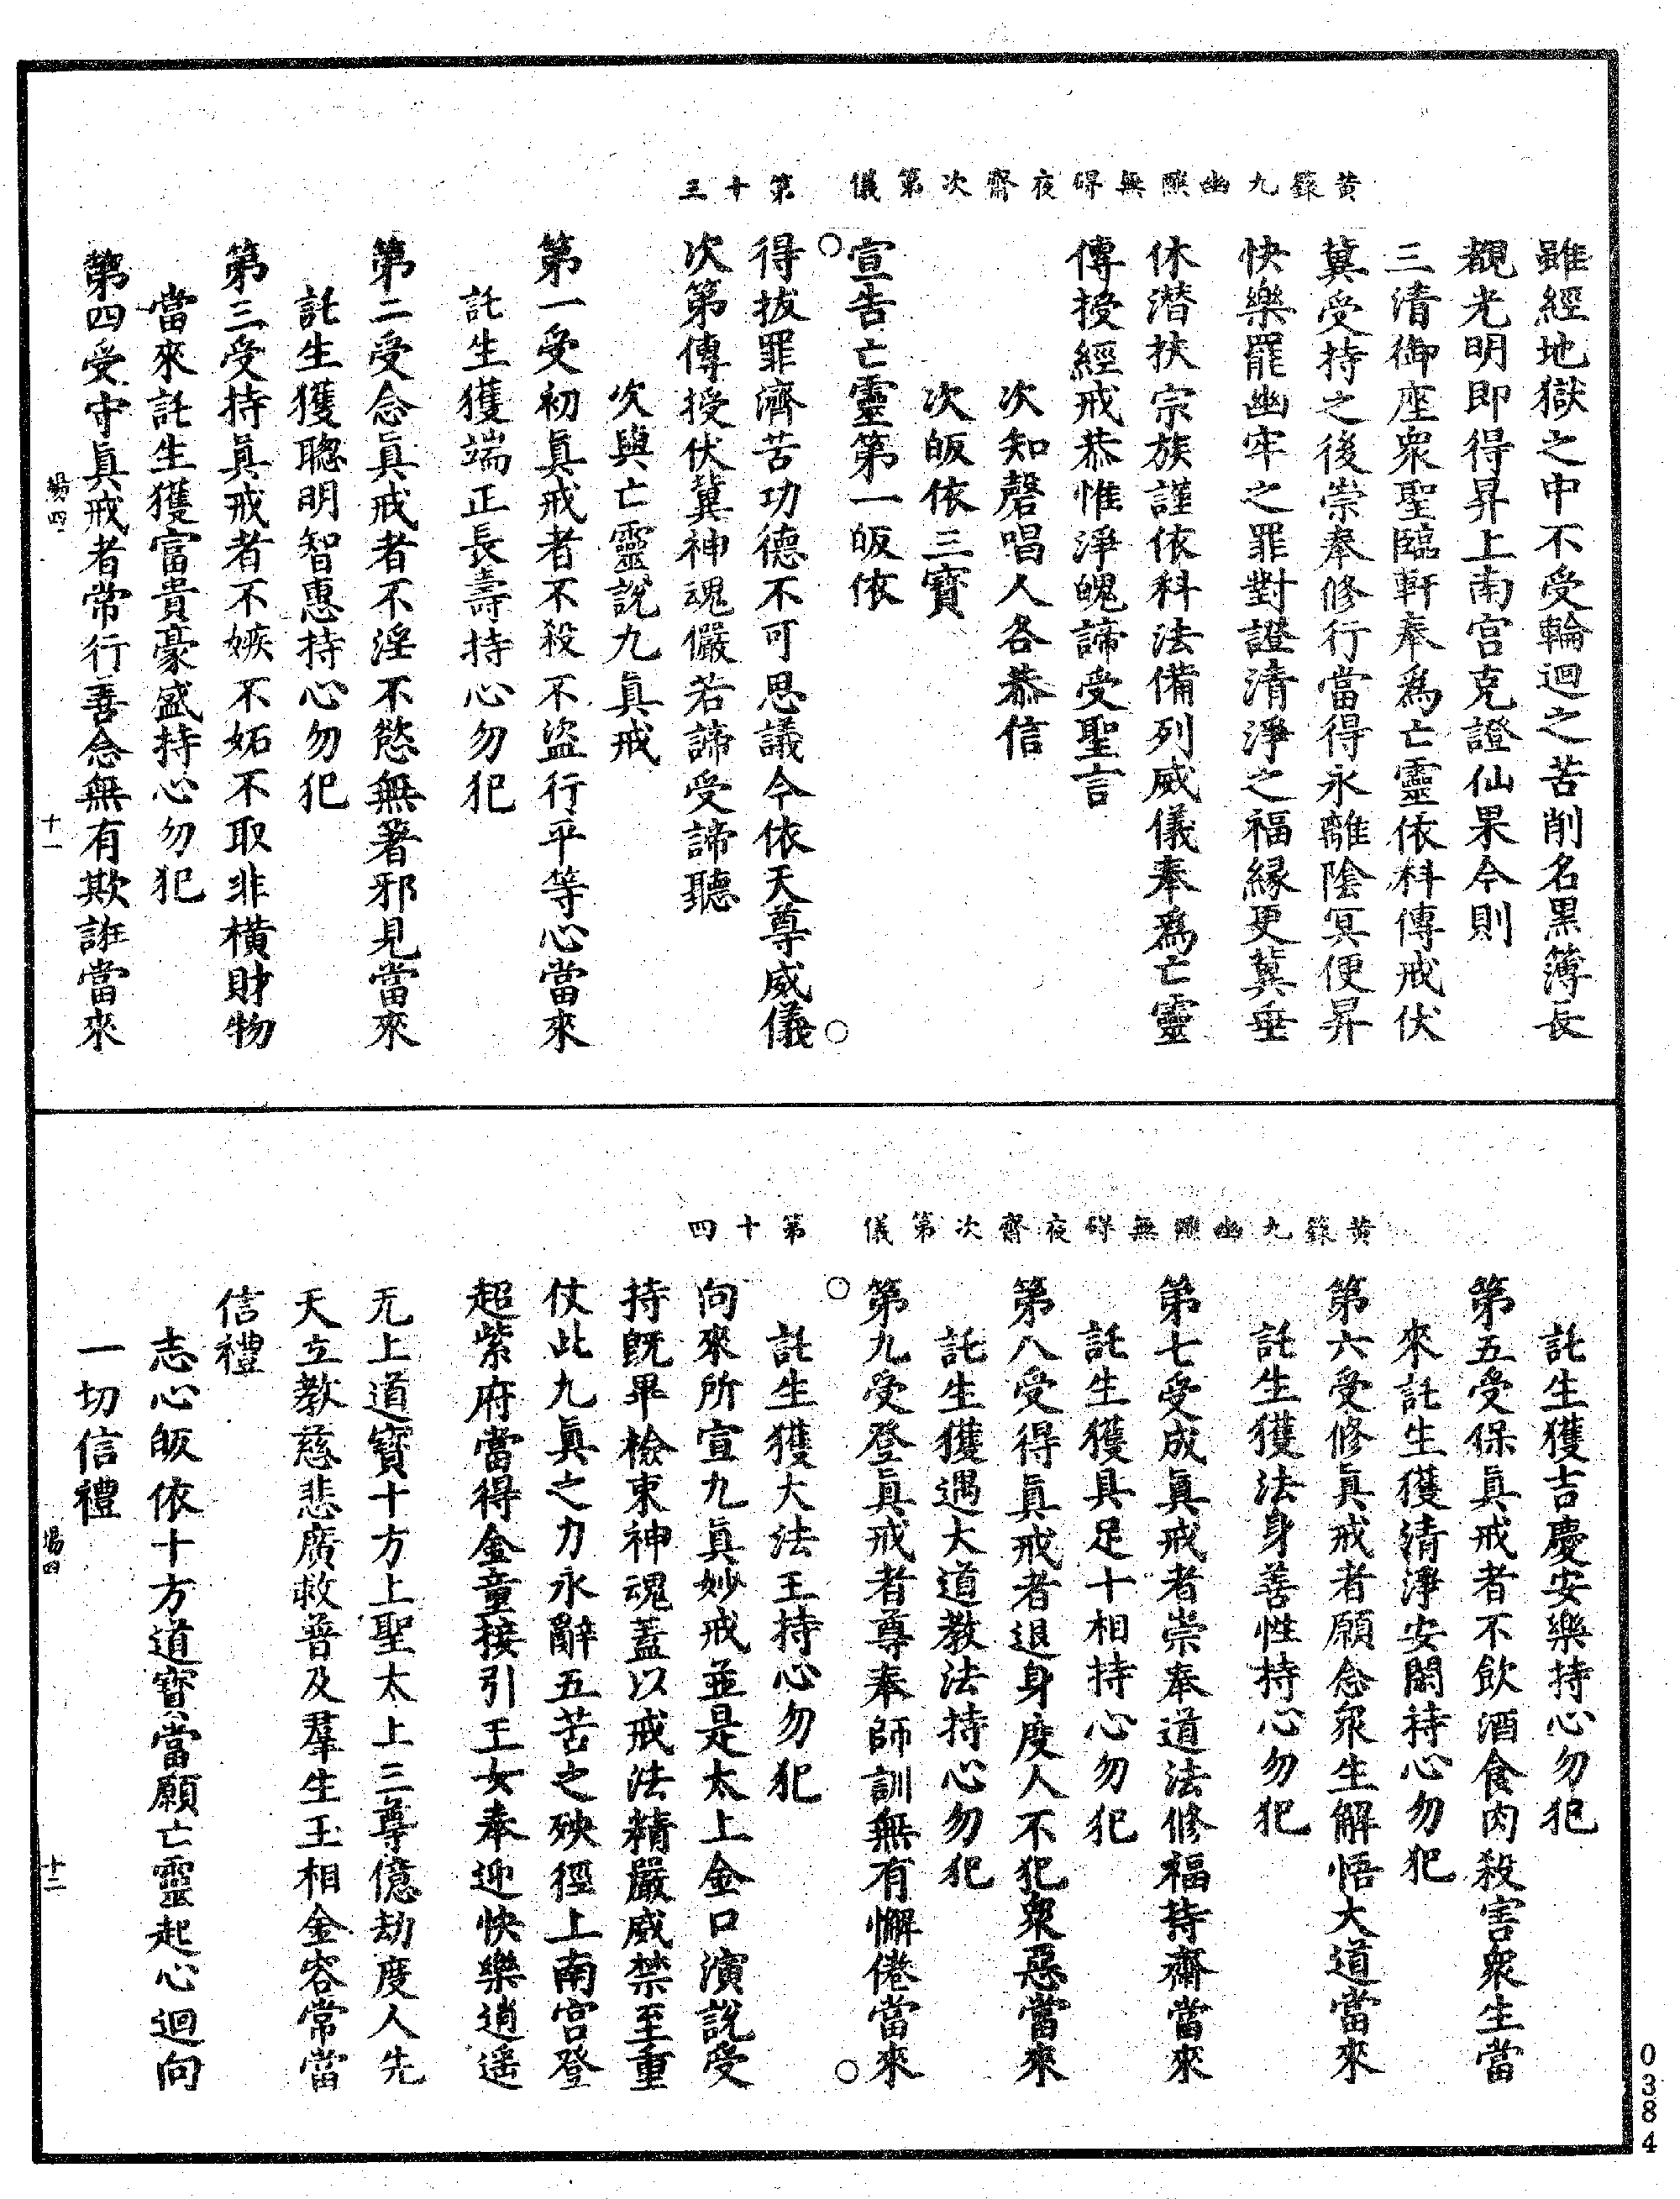 黃籙九幽醮無碍夜齋次第儀　第十三
雖經地獄之中不受輪迴之苦削名黑簿長
覩光明即得昇上南宮克證仙果今則
三清御座衆聖臨軒奉爲亡靈依科傳戒伏
冀受持之後崇奉修行當得永離陰冥便昇
快樂罷幽牢之罪對證清淨之福緣更冀垂
休潛扶宗族謹依科法備列威儀奉爲亡靈
傳授經戒恭惟淨魄諦受聖言
次知磬唱人各恭信
次皈依三寶
宣告亡靈第一皈依
得拔罪濟苦功德不可思議今依天尊威儀
次第傳授伏冀神魂儼若諦受諦聽
次與亡靈說九眞戒
第一受初眞戒者不殺不盜行平等心當來
託生獲端正長壽持心勿犯
第二受念眞戒者不淫不慾無著邪見當來
託生獲聰明智惠持心勿犯
第三受持眞戒者不嫉不妬不取非橫財物
當來託生獲富貴豪盛持心勿犯
第四受守眞戒者常行善念無有欺誑當來
場四
十一
黃籙九幽醮無碍夜齋次第儀　第十四
託生獲吉慶安樂持心勿犯
第五受保眞戒者不飲酒食肉殺害衆生當
來託生獲清淨安閑持心勿犯
第六受修眞戒者願念衆生解悟大道當來
託生獲法身善性持心勿犯
第七受成眞戒者崇奉道法修福持齋當來
託生獲具足十相持心勿犯
第八受得眞戒者退身度人不犯衆惡當來
託生獲遇大道教法持心勿犯
第九受登眞戒者尊奉師訓無有懈倦當來
託生獲大法王持心勿犯
向來所宣九眞妙戒並是太上金口演說受
持旣畢檢束神魂蓋以戒法精嚴威禁至重
仗此九眞之力永辭五苦之殃徑上南宮登
超紫府當得金童接引王女奉迎快樂逍遥
无上道寶十方上聖太上三尊億劫度人先
天立教慈悲廣救普及羣生玉相金容常當
信禮
志心皈依十方道寶當願亡靈起心迴向
一切信禮
場四
十二
0384